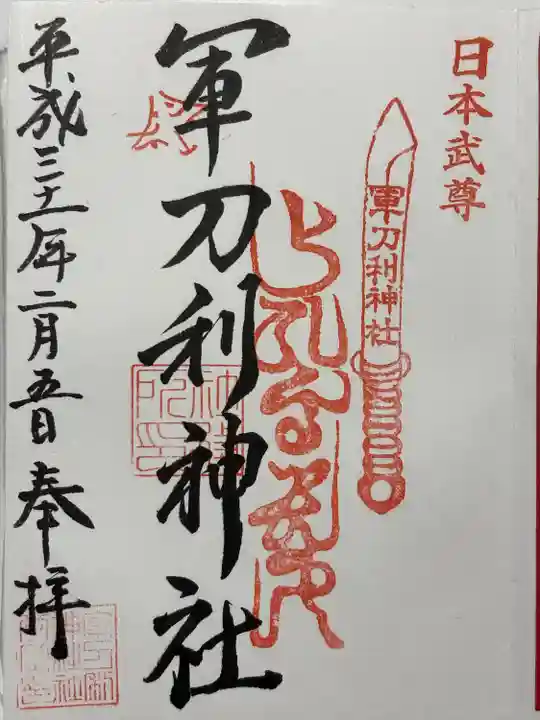 日本武尊
軍刀利神社
軍刀利神社
平成三十一年二月五日 奉拝